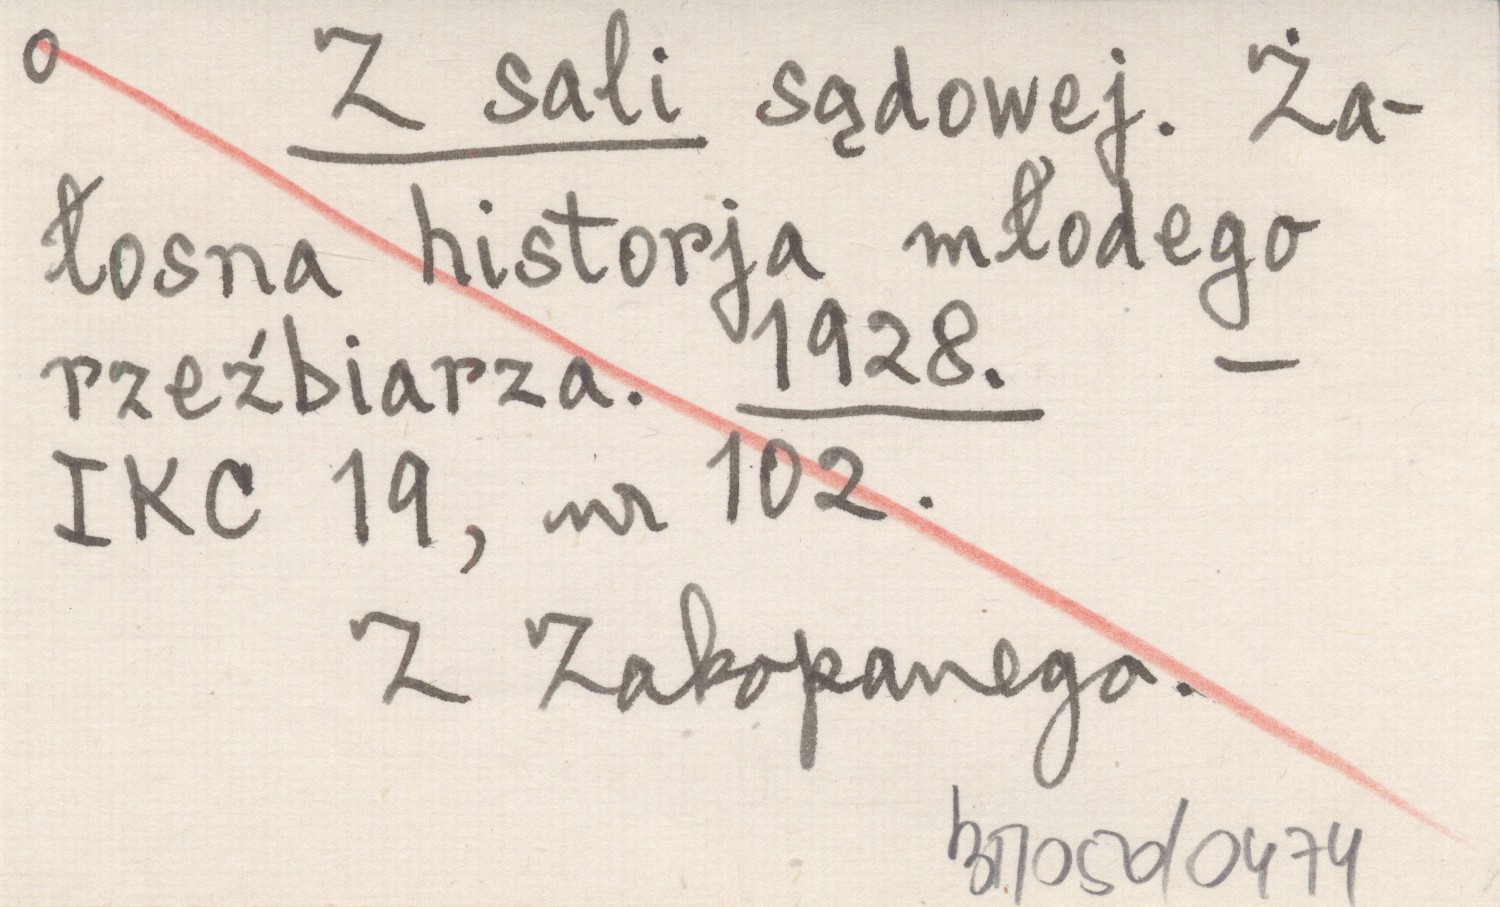 o Z sali sądowej. Ża-
łosna historja młodego
rzeźbiarza. 1928. —
IKC 19, nr 102.
Z Zakopanego.